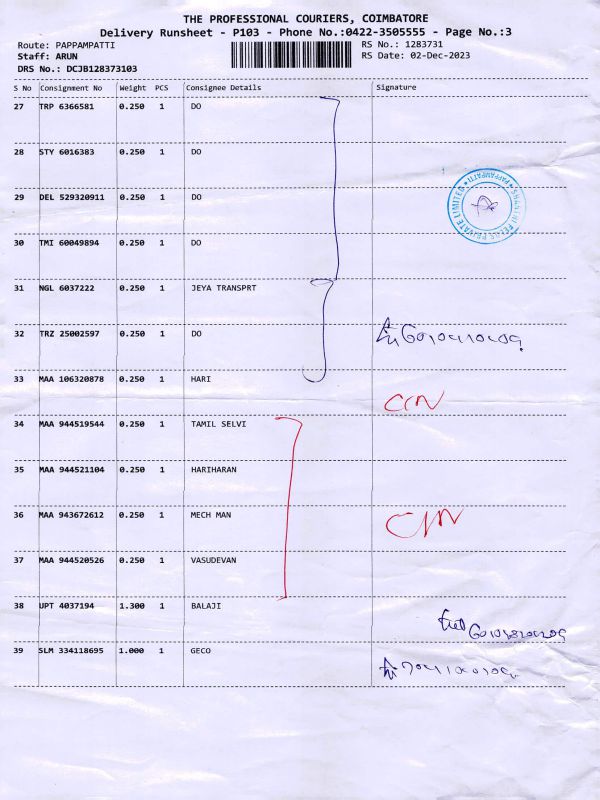 THE PROFESSIONAL COURIERS, COIMBATORE
Delivery Runsheet - P103 - Phone No.:0422-3505555 - Page No.:3
Route: PAPPAMPATTI RS No.: 1283731
Staff: ARUN RS Date: 02-Dec-2023
DRS No.: DCJB128373103
S No Consignment No Weight PCS Consignee Details Signature
27 TRP 6366581 0.250 1 DO
28 STY 6016383 0.250 1 DO
29 DEL 529320911 0.250 1 DO
PRIVATE LIMITED * PAPPAMPATTI *
30 TMI 60049894 0.250 1 DO
31 NGL 6037222 0.250 1 JEYA TRANSPRT
32 TRZ 25002597 0.250 1 DO
33 MAA 106320878 0.250 1 HARI
34 MAA 944519544 0.250 1 TAMIL SELVI
35 MAA 944521104 0.250 1 HARIHARAN
36 MAA 943672612 0.250 1 MECH MAN
37 MAA 944520526 0.250 1 VASUDEVAN
38 UPT 4037194 1.300 1 BALAJI
39 SLM 334118695 1.000 1 GECO